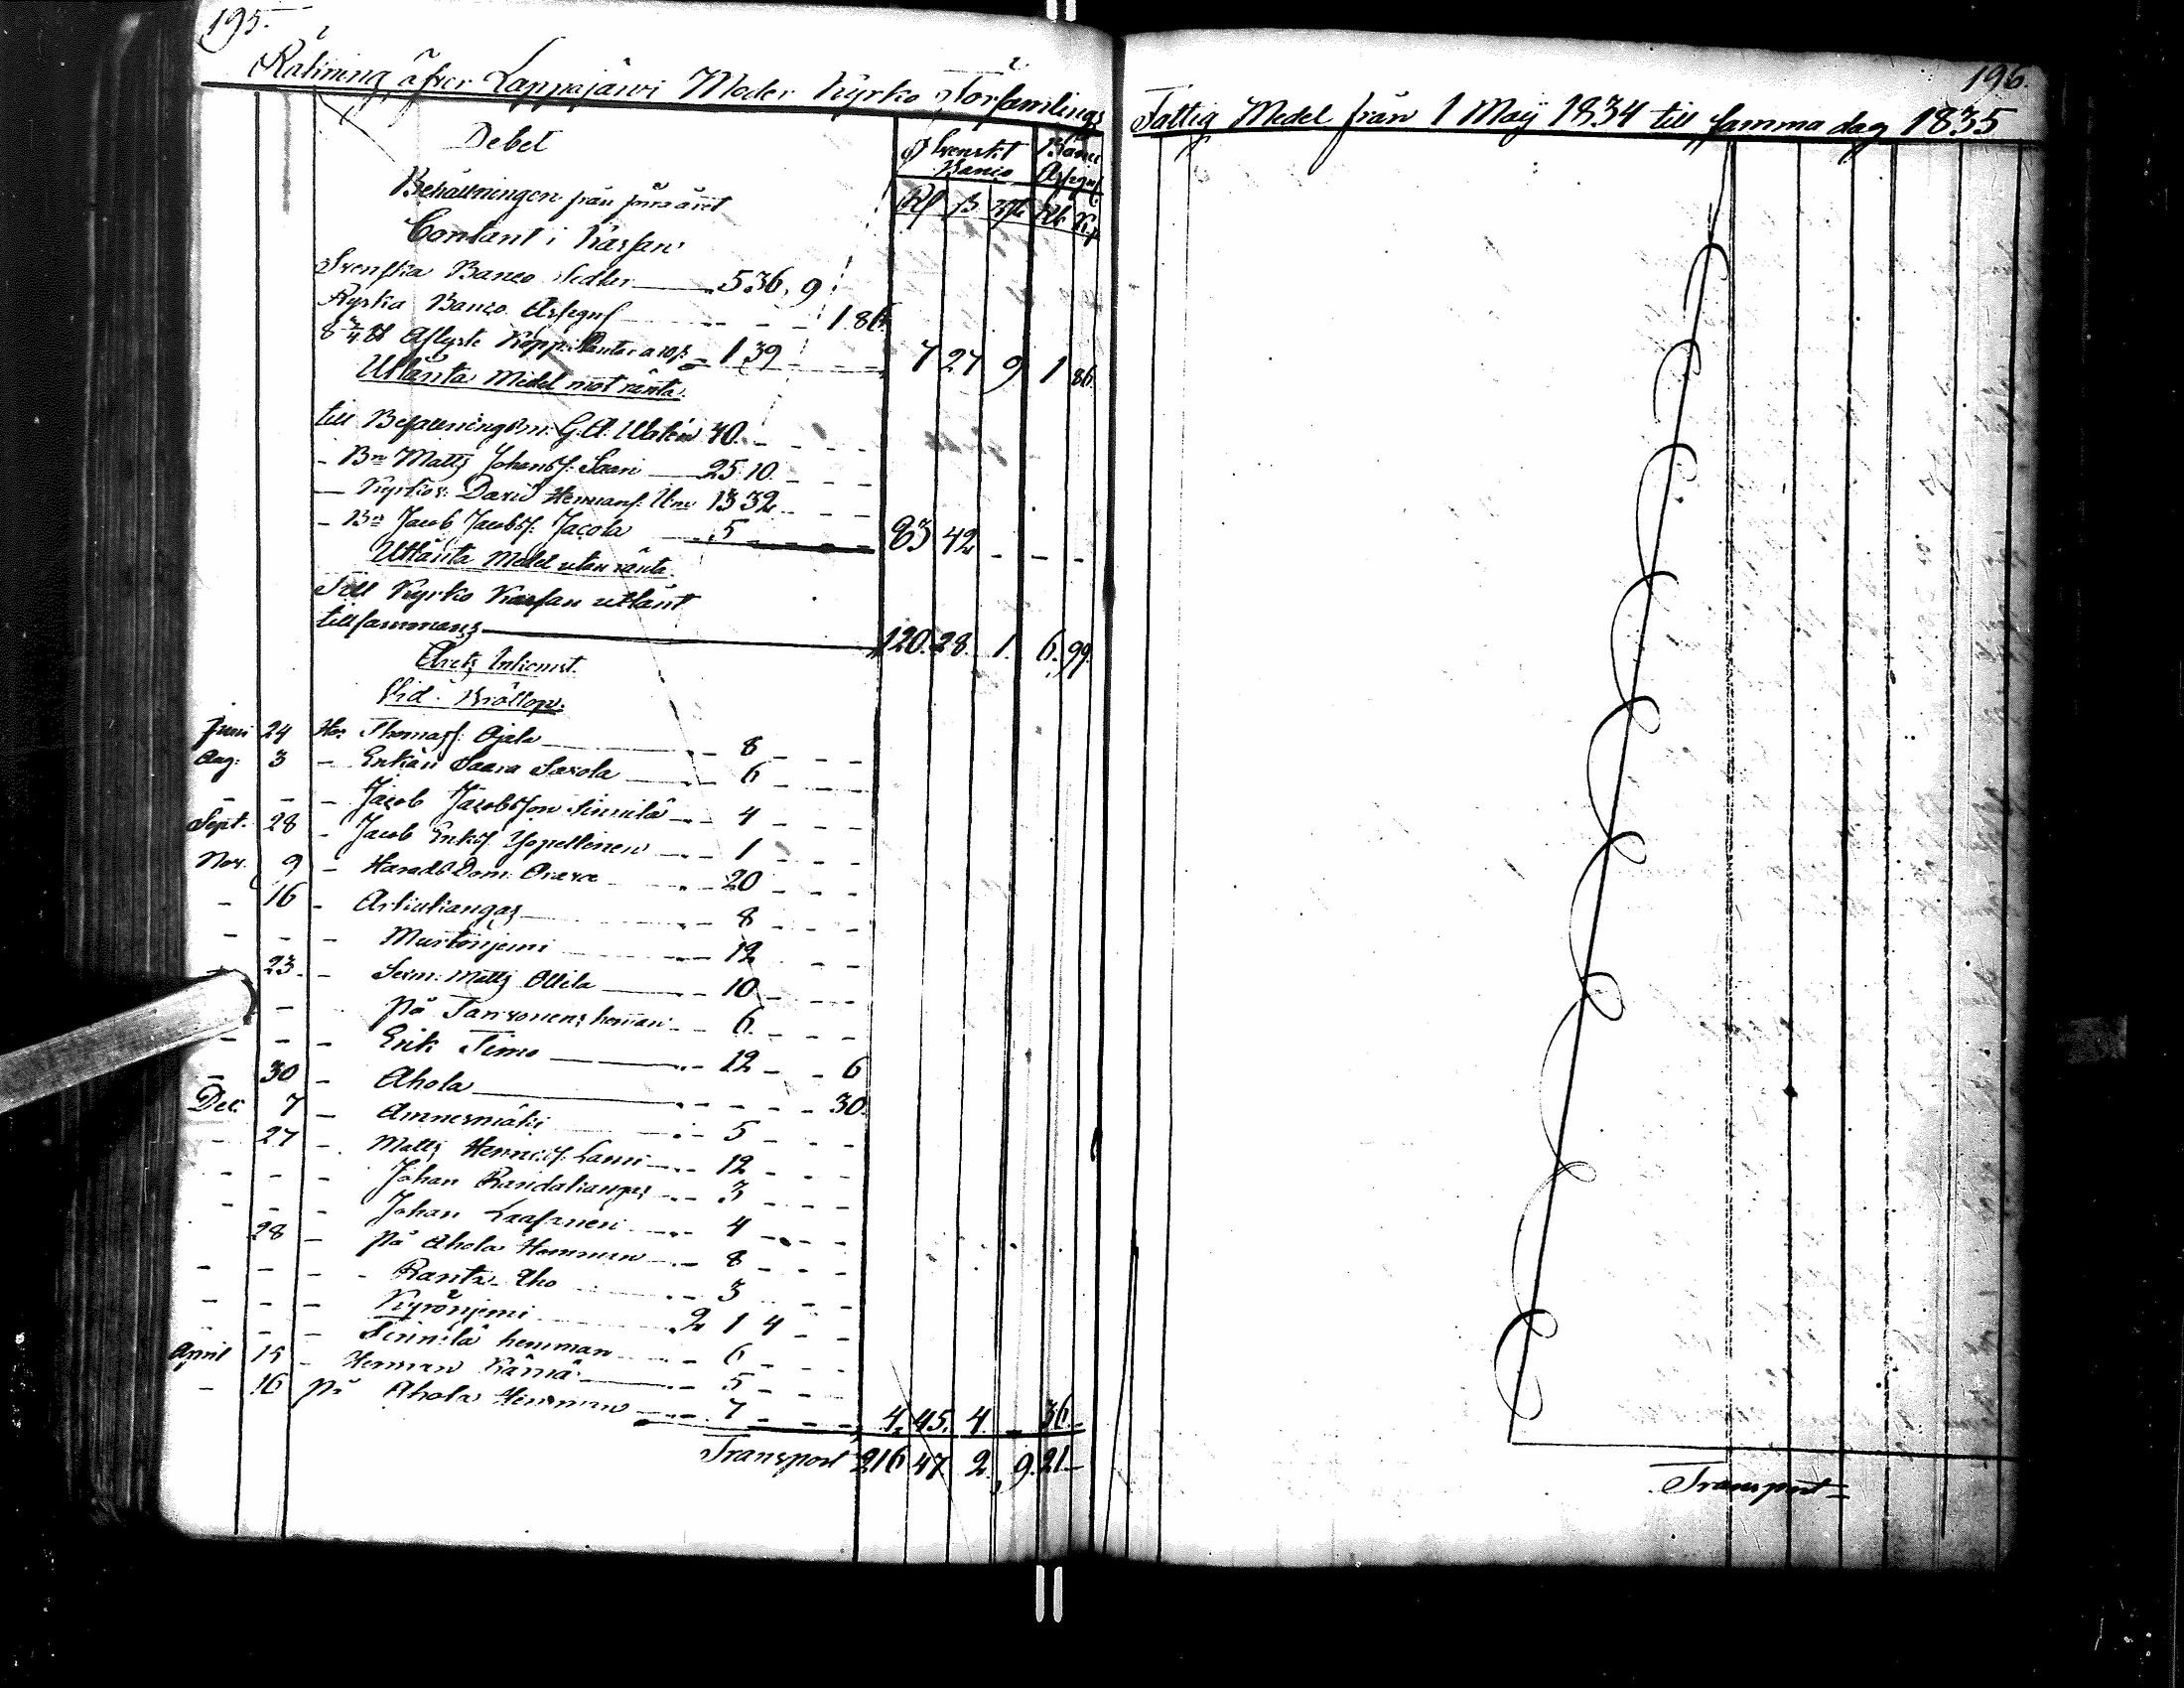 195.
Räkning öfver Lappajärvi Moder Kyrko Församlings
Debet
Svenskt Banco
Banco Assign
Rd ß rst Rb Kp
Behållningen från förra året
Contant i Kassan
Svenska Banco Sedlar 5 36. 9
Ryska Banco Assign 1 86.
8 3/4 lb Aflyste Kopp. Plantar a 10 ß 1 39 7 27 9 1 86.
Utlånta Medel mot ränta.
till Befallningsm: G. A. Walén 40. - - - -
- Bn Matts Johanss: Saari 25 10. - - -
- Kyrkov: David Hermans: 13 32 - - -
- Bn Jacob Jacobss: Jacola 5 - - - - 83 42 - - -
Utlånta Medel utan ränta.
Till Kyrko Kassan utlånt
tillsammans 120. 28. 1. 6. 99.
Årets Inkomst.
Vid Bröllop.
Juni 24 Hos Thomas: Ojala - 8 - - -
Aug: 3 - Enkan Saara Savola - 6 - - -
- - - Jacob Jacobsson Sinnilä - 4 - - -
Sept. 28 - Jacob Eriks: - 1 - - -
Nov. 9 - Härads Dom: - 20 - - -
- 16 - Artiukangas - 8 - - -
- - - Murtoniemi - 12 - - -
- 23. - Sexm: Matts Ollila - 10 - - -
- på hemman - 6. - - -
- - - Erik Timo - 12 - - 6
- 30 - Ahola - - - - 30.
Dec: 7 - Ammesmäki - 5 - - -
- 27 - Matts Lassi - 12 - - -
- - - Johan - 3 - - -
- - - Johan - 4 - - -
28 - på Ahola Hemman - 8 - - -
- - - Ranta-Aho - 3 - - -
- - - Kyröniemi 2 1 4 - -
- - - Sinnilä hemman - 6 - - -
April 15 - Herman Kärnä - 5 - - -
- 16 på Ahola Hemman - 7 - - - 4. 45. 4. - 36.
Transport 216 47 2. 9. 21.
196.
Fattig Medel från 1 Maÿ 1834 till samma dag 1835
Transport